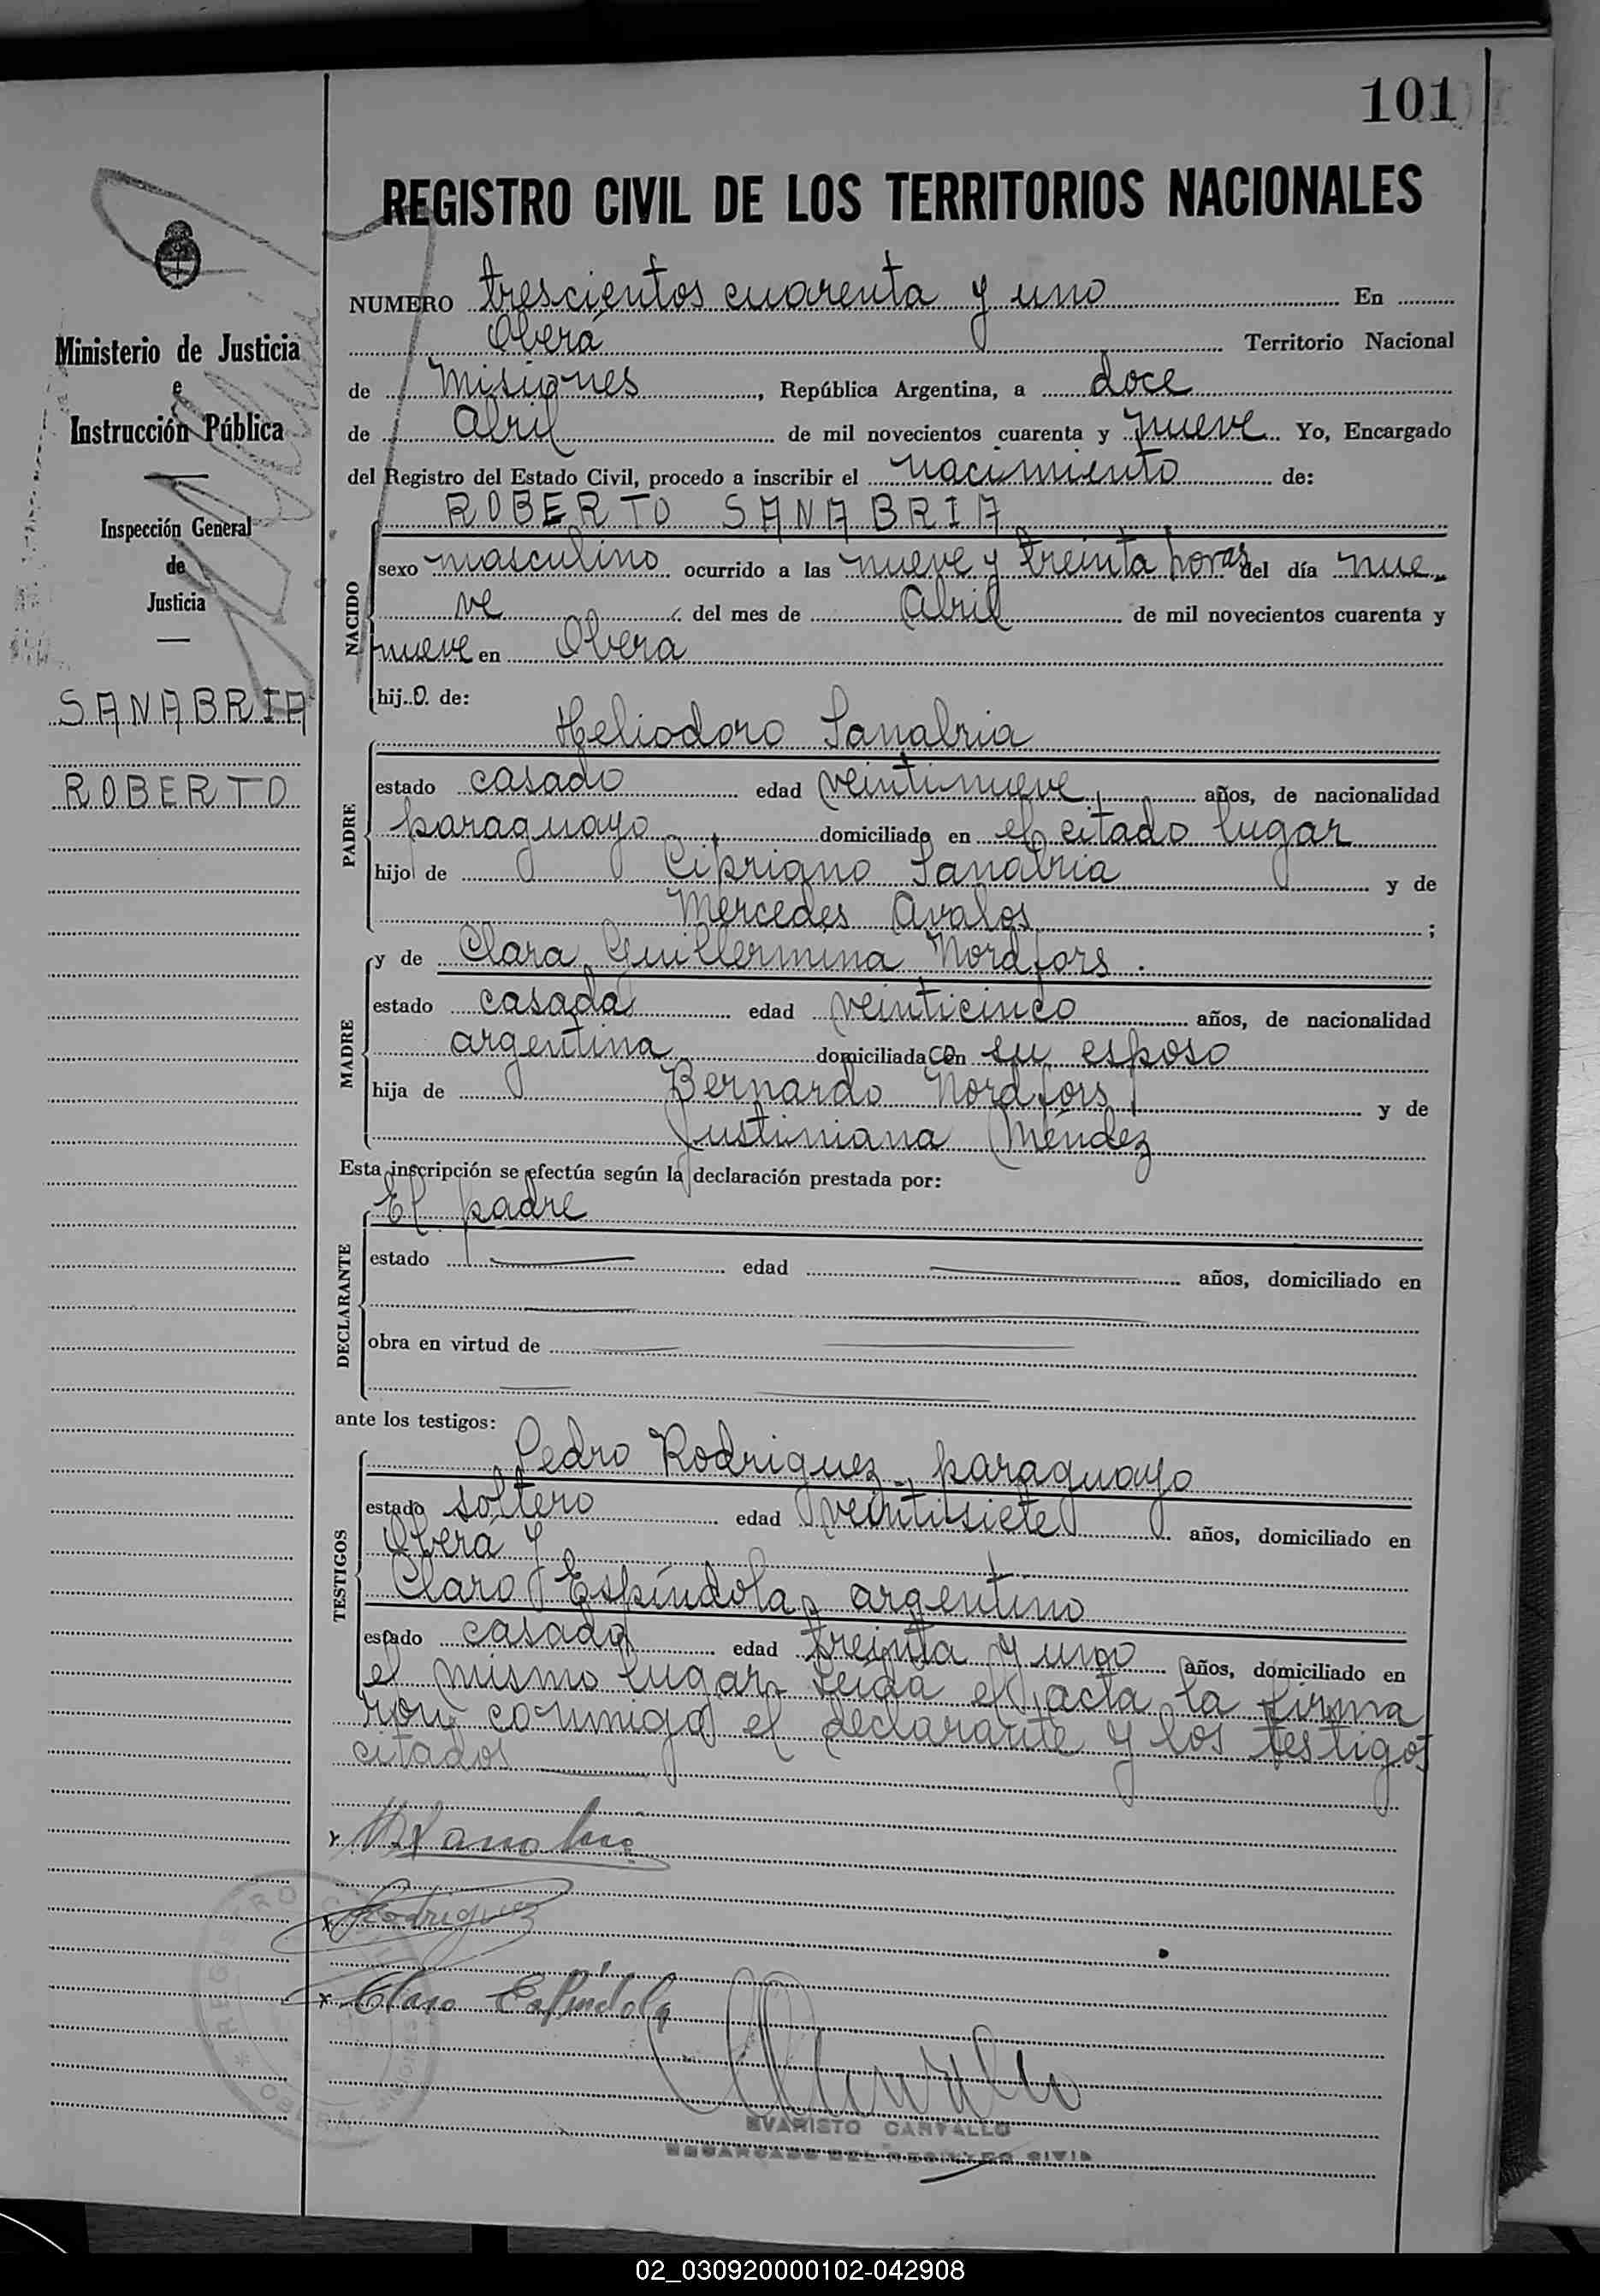 101
REGISTRO CIVIL DE LOS TERRITORIOS NACIONALES
Ministerio de Justicia
e
Instrucción Pública
Inspección General
de
Justicia
SANABRIA
ROBERTO
NUMERO trescientos cuarenta y uno En
Oberá Territorio Nacional
de Misiones, República Argentina, a doce
de Abril de mil novecientos cuarenta y nueve Yo, Encargado
del Registro del Estado Civil, procedo a inscribir el nacimiento de:
ROBERTO SANABRIA
NACIDO
sexo masculino ocurrido a las nueve y treinta horas del día nue
ve del mes de Abril de mil novecientos cuarenta y
nueve en Obera
hijo. de:
Heliodoro Sanabria
PADRE
estado casado edad veintinueve años, de nacionalidad
paraguayo domiciliado en el citado lugar
hijo de Cipriano Sanabria y de
Mercedes Avalos ;
MADRE
y de Clara Guillermina Nordfors.
estado casada edad veinticinco años, de nacionalidad
argentina domiciliada con su esposo
hija de Bernardo Nordfors y de
Justiniana Méndez
Esta inscripción se efectúa según la declaración prestada por:
El padre
DECLARANTE
estado edad años, domiciliado en
obra en virtud de
ante los testigos:
Pedro Rodriguez, paraguayo
TESTIGOS
estado soltero edad veintisiete años, domiciliado en
Oberá y
Claro Espíndola, argentino
estado casado edad treinta y uno años, domiciliado en
el mismo lugar, leida el acta la firma
ron conmigo el declarante y los testigos
citados
Rodriguez
Claro Espíndola
REGISTRO
OBERA
EVARISTO CARVALLO
ENCARGADO DEL REGISTRO CIVIL
02_030920000102-042908